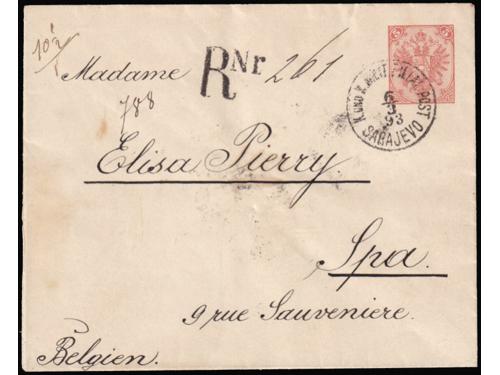 10½
Madame
RNr 261
788
5 5
K. UND K. MILIT. POST
6
3
93
SARAJEVO
Elisa Pierry
Spa.
9 rue Sauveniere
Belgien.